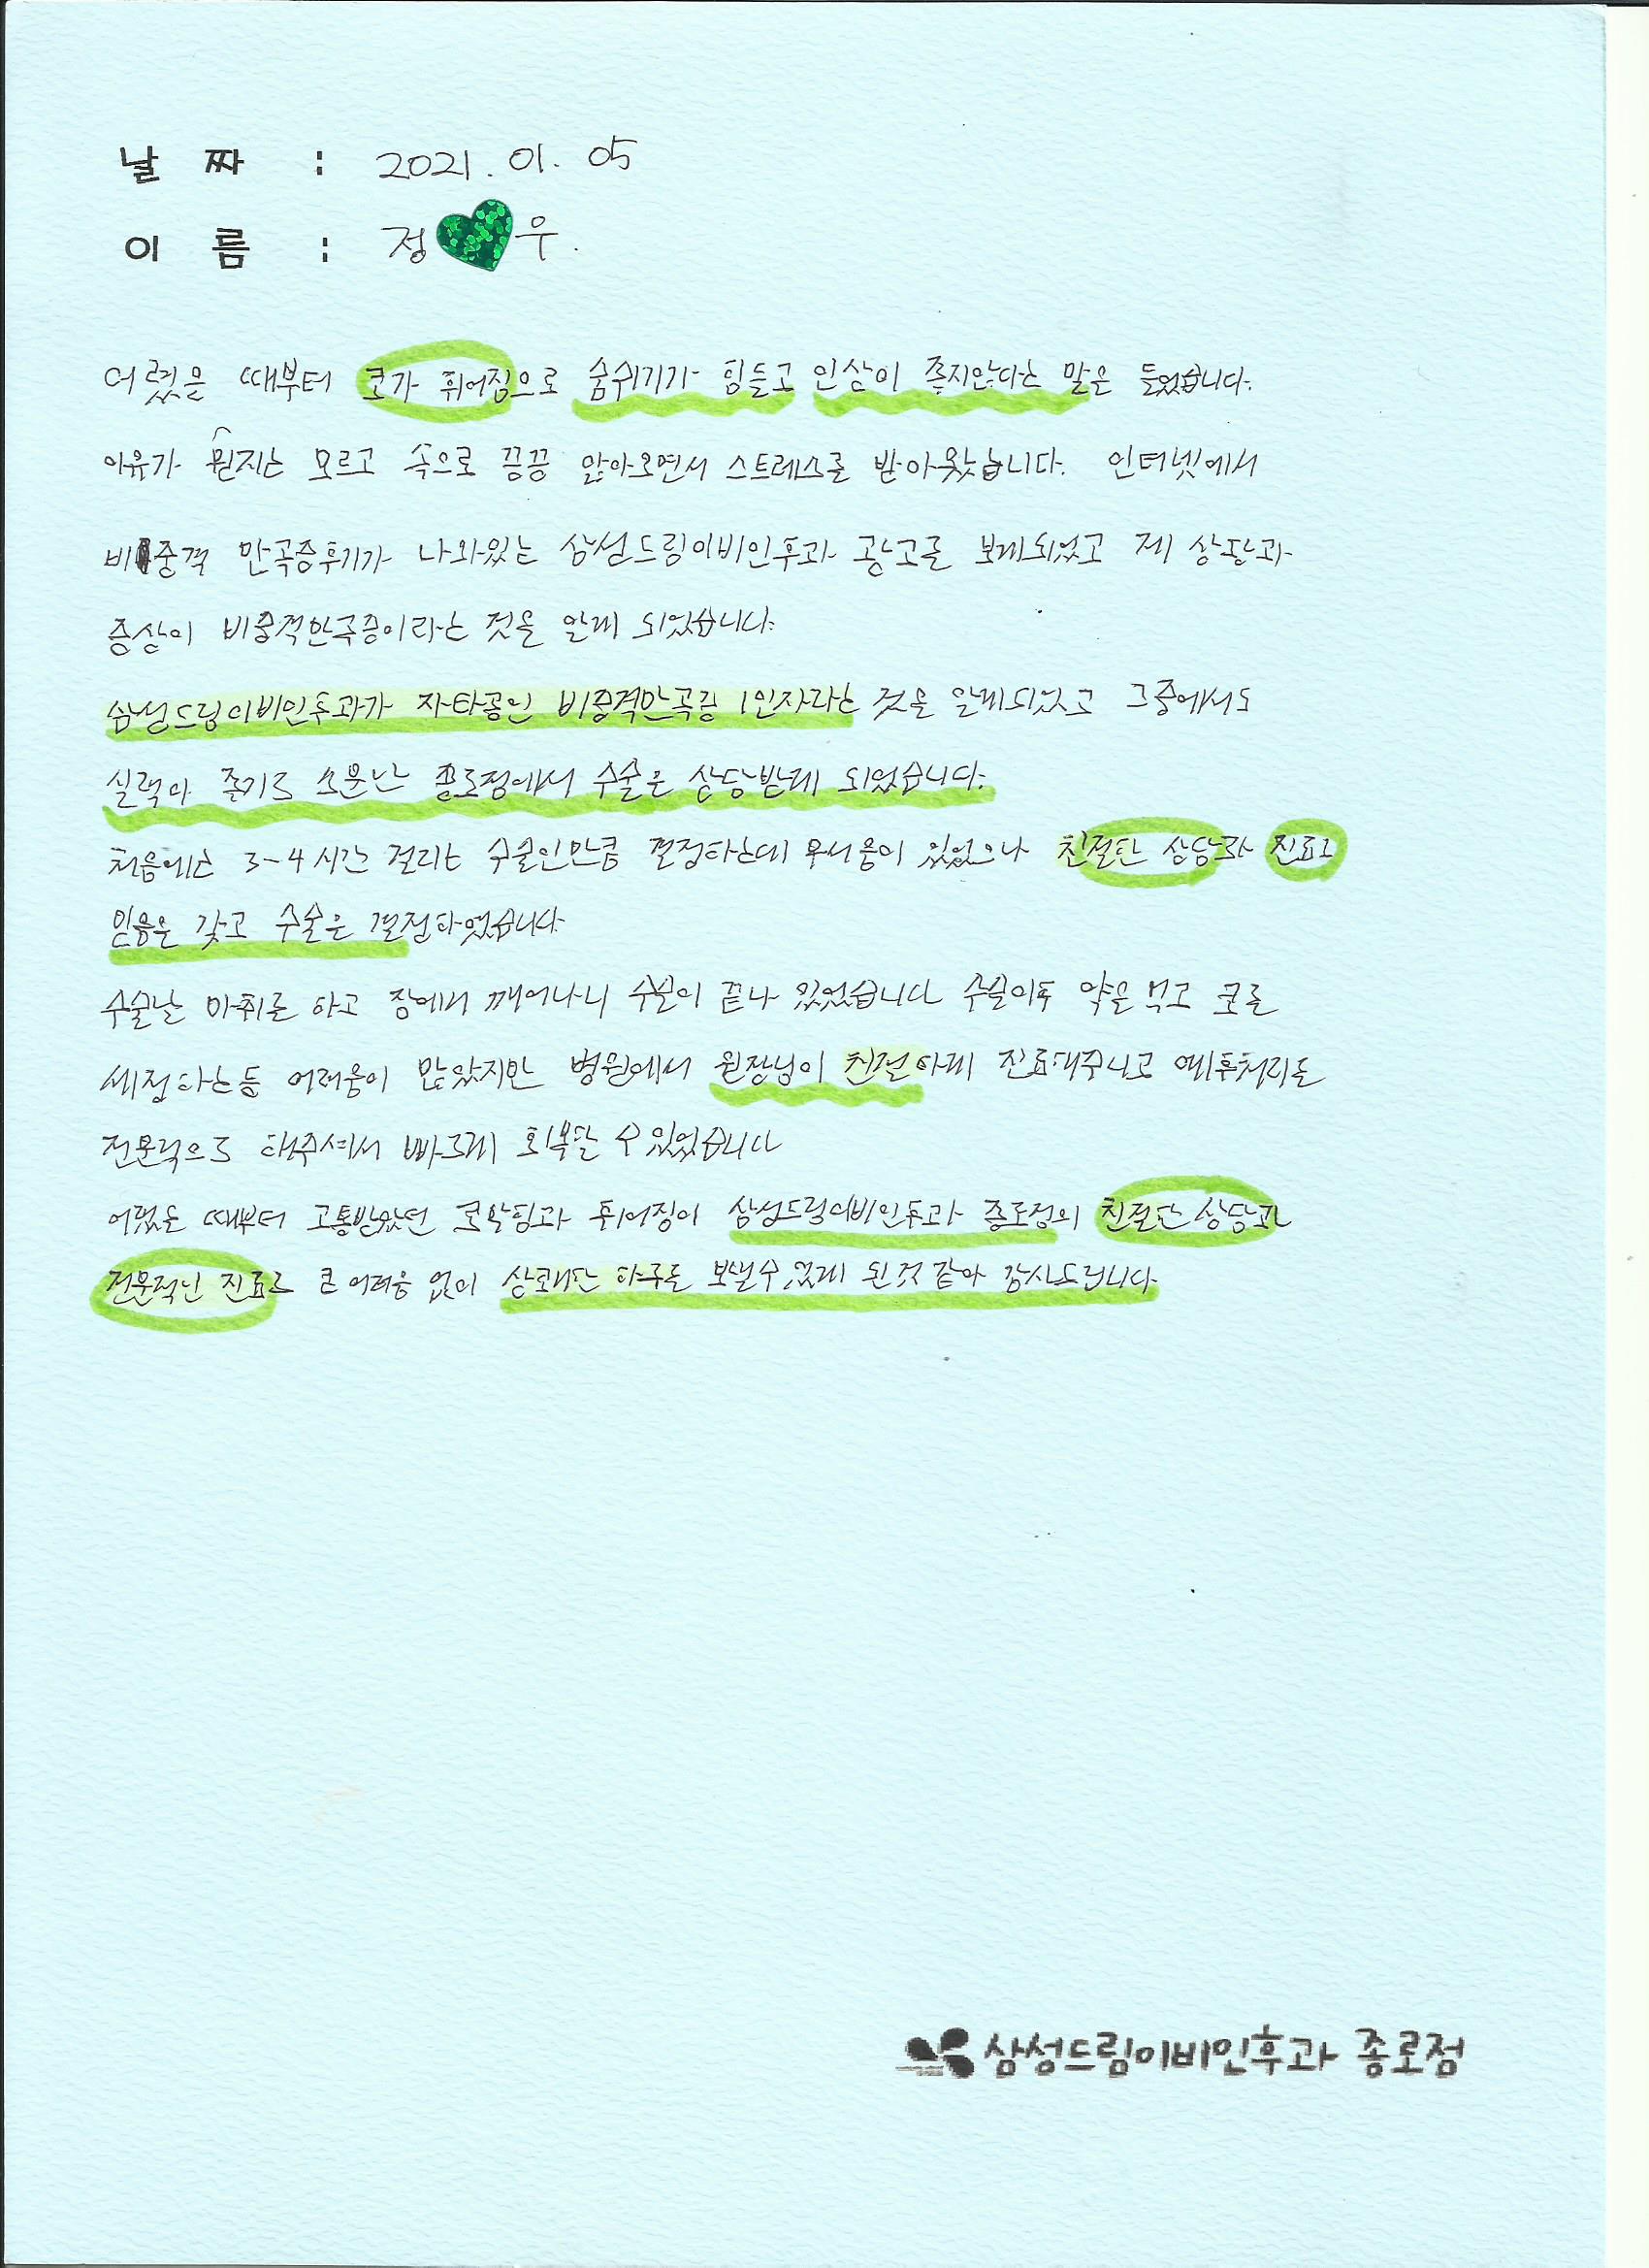 날 짜 : 2021. 01. 05
이 름 : 정 우.
어렸을 때부터 코가 휘어짐으로 숨쉬기가 힘들고 인상이 좋지않다는 말을 들었습니다.
이유가 뭔지는 모르고 속으로 끙끙 앓아오면서 스트레스를 받아왔습니다. 인터넷에서
비중격 만곡증후기가 나와있는 삼성드림이비인후과 광고를 보게되었고 제 상황과
증상이 비중격만곡증이라는 것을 알게 되었습니다.
삼성드림이비인후과가 자타공인 비중격만곡증 1인자라는 것을 알게되었고 그중에서도
실력이 좋기로 소문난 종로점에서 수술을 상담받게 되었습니다.
처음에는 3-4시간 걸리는 수술인만큼 결정하는데 무서움이 있었으나 친절한 상담과 진료로
믿음을 갖고 수술을 결정하였습니다
수술날 마취를 하고 잠에서 깨어나니 수술이 끝나 있었습니다 수술이후 약을 먹고 코를
세정하는등 어려움이 많았지만 병원에서 원장님이 친절하게 진료해주시고 예후처리를
전문적으로 해주셔서 빠르게 회복할 수 있었습니다
어렸을 때부터 고통받았던 코막힘과 휘어짐이 삼성드림이비인후과 종로점의 친절한 상담과
전문적인 진료로 큰 어려움 없이 상쾌한 하루를 보낼수 있게 된것 같아 감사드립니다
삼성드림이비인후과 종로점